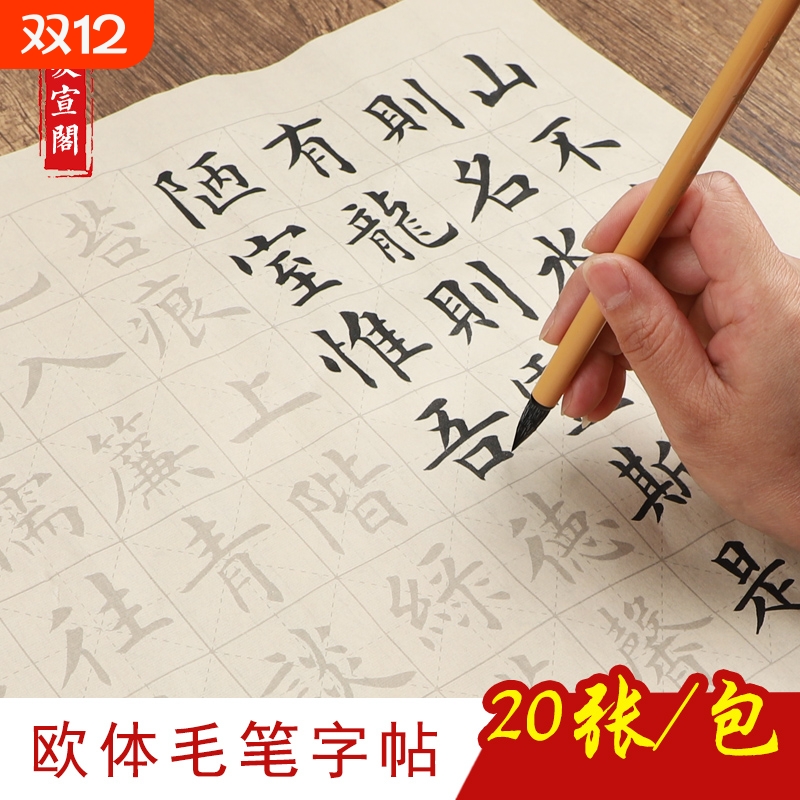 双12
宣閣
山不
則名水
有龍則斯是
陋室惟吾德馨
苔痕上階綠
入簾青談
儒往
欧体毛笔字帖
20张/包